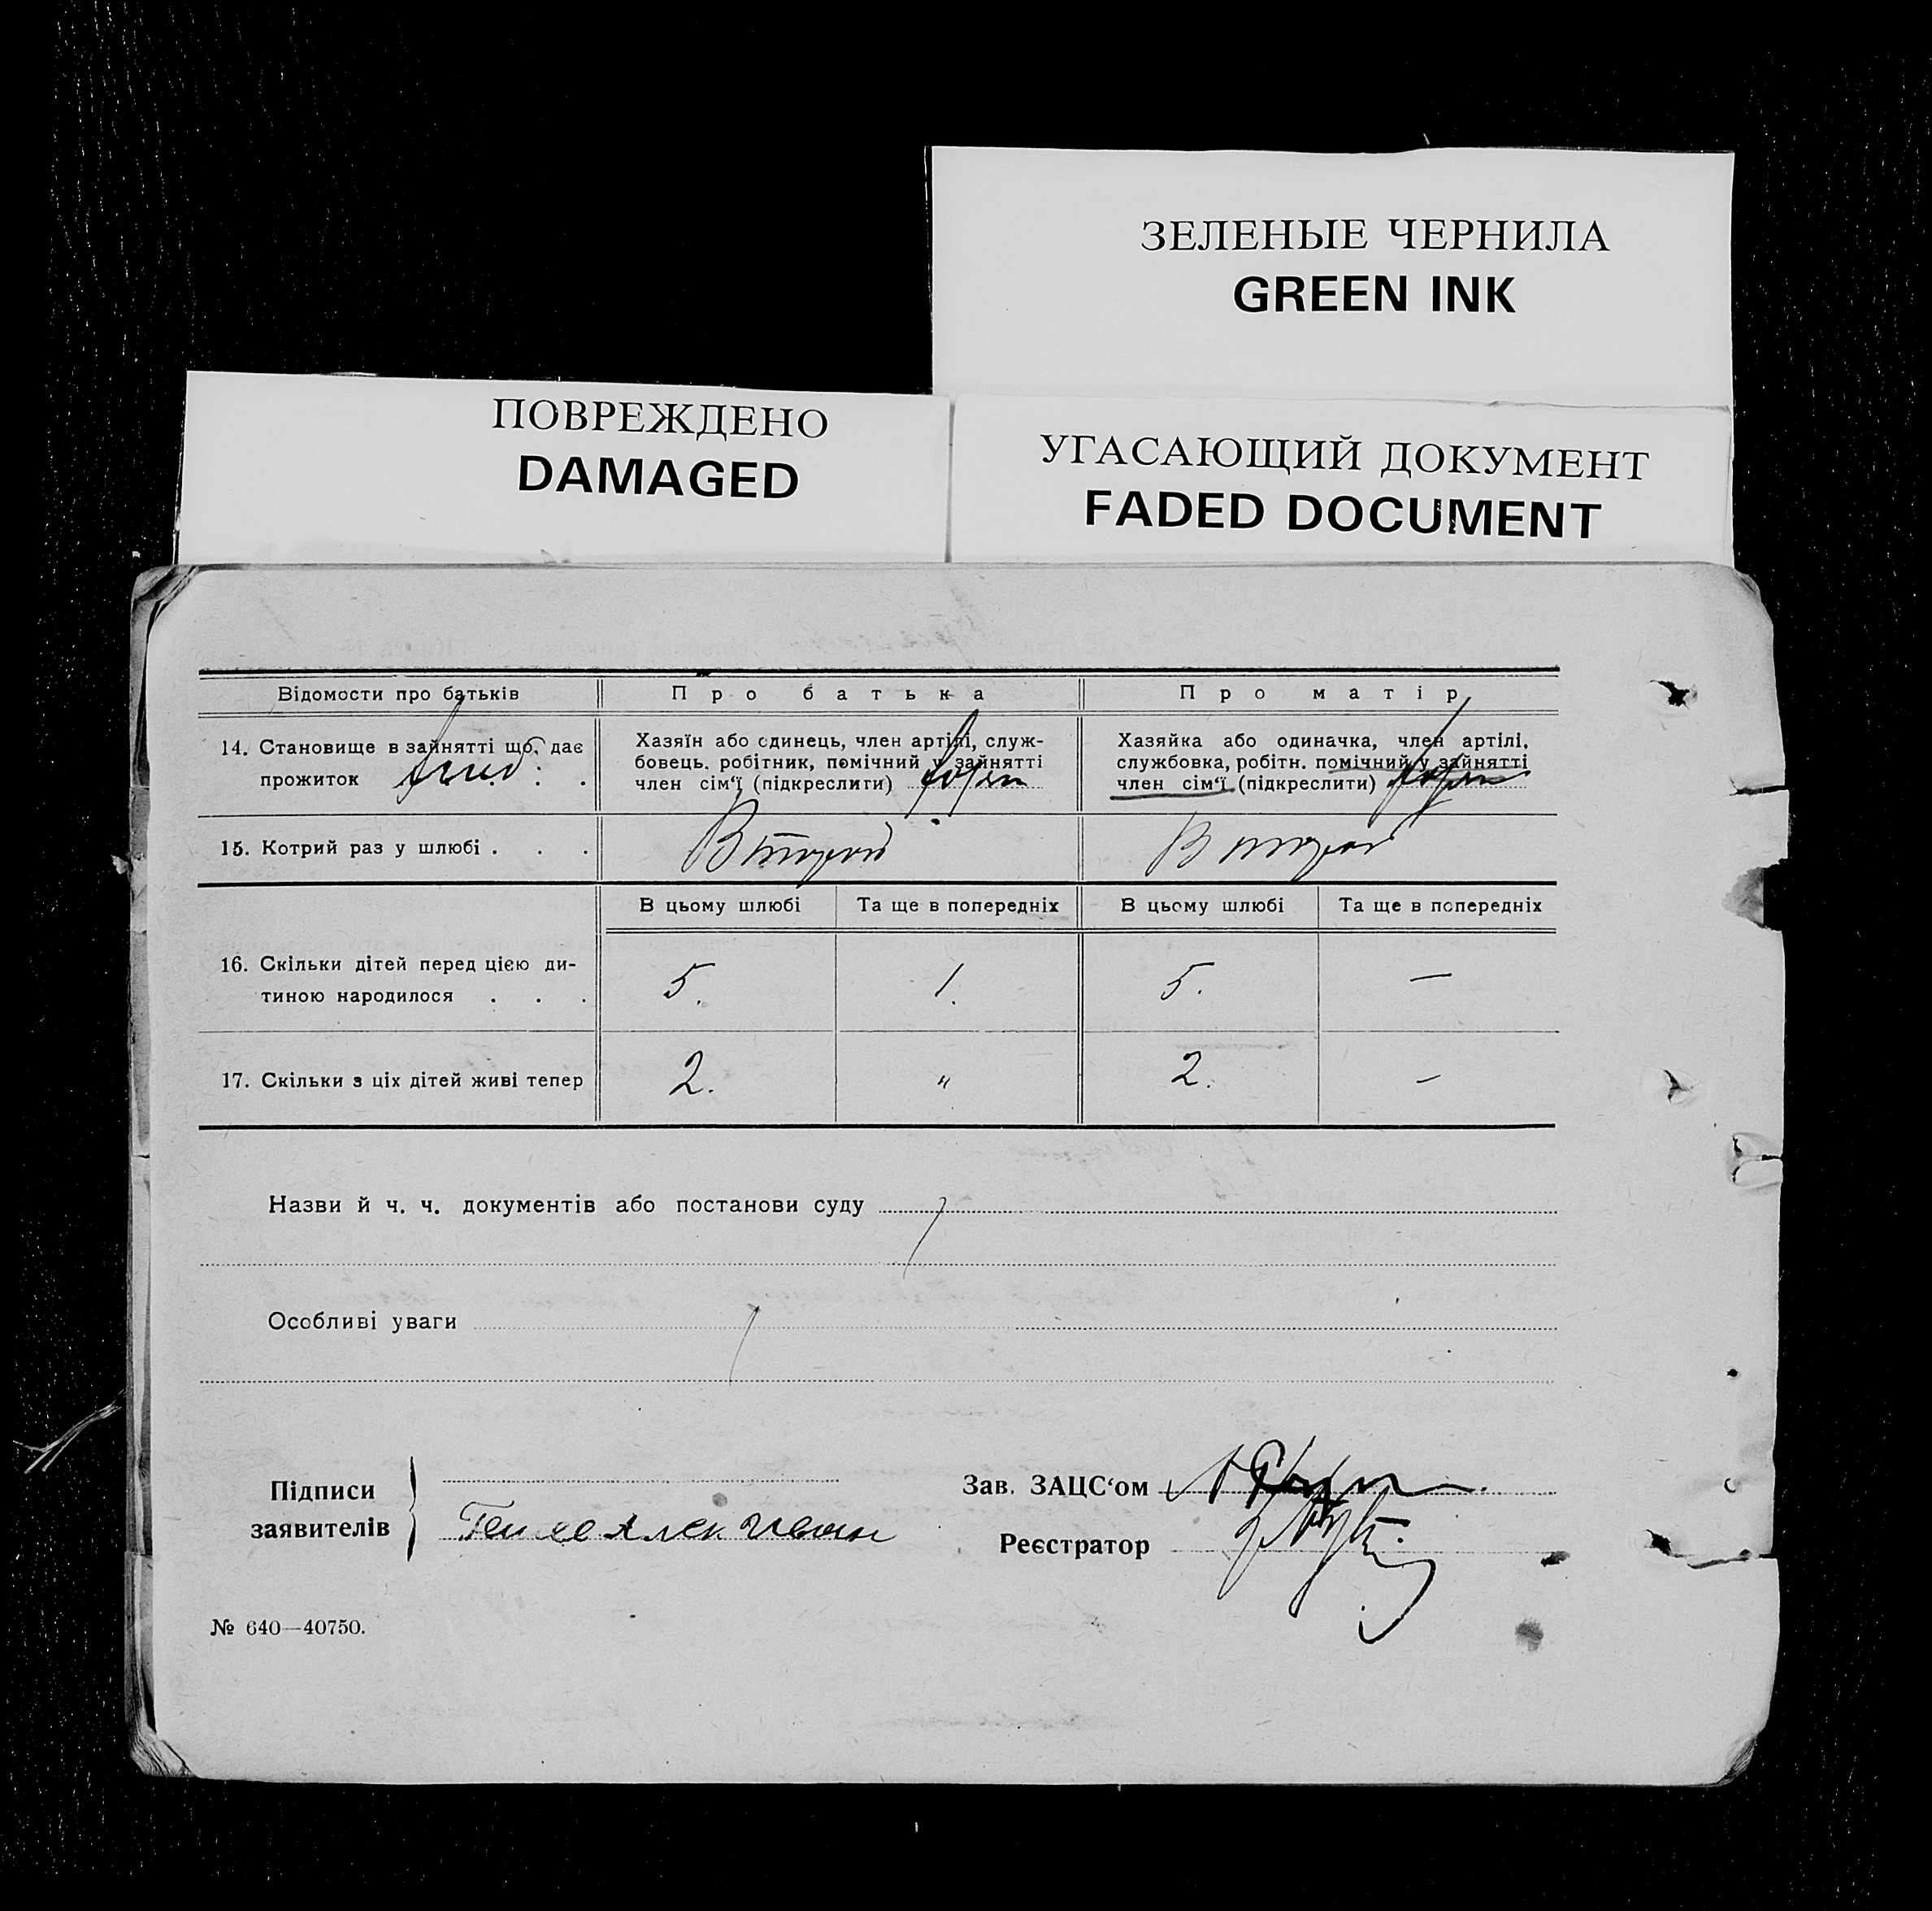 ЗЕЛЕНЫЕ ЧЕРНИЛА
GREEN INK
ПОВРЕЖДЕНО
DAMAGED
УГАСАЮЩИЙ ДОКУМЕНТ
FADED DOCUMENT
Відомости про батьків
Про батька
Про матір
14. Становище в зайнятті що дає
прожиток
Хазяїн або одинець, член артілі, служ-
бовець. робітник, помічний у зайнятті
член сім‘ї (підкреслити)
Хазяйка або одиначка, член артілі,
службовка, робітн. помічний у зайнятті
член сім‘ї (підкреслити)
15. Котрий раз у шлюбі . . .
Второй
Второй
В цьому шлюбі
Та ще в попередніх
В цьому шлюбі
Та ще в попередніх
16. Скільки дітей перед цією ди-
тиною народилося . . .
5.
1.
5.
—
17. Скільки з ціх дітей живі тепер
2.
"
2.
—
Назви й ч. ч. документів або постанови суду
Особливі уваги
Підписи
заявителів
Зав. ЗАЦС‘ом
Реєстратор
№ 640—40750.